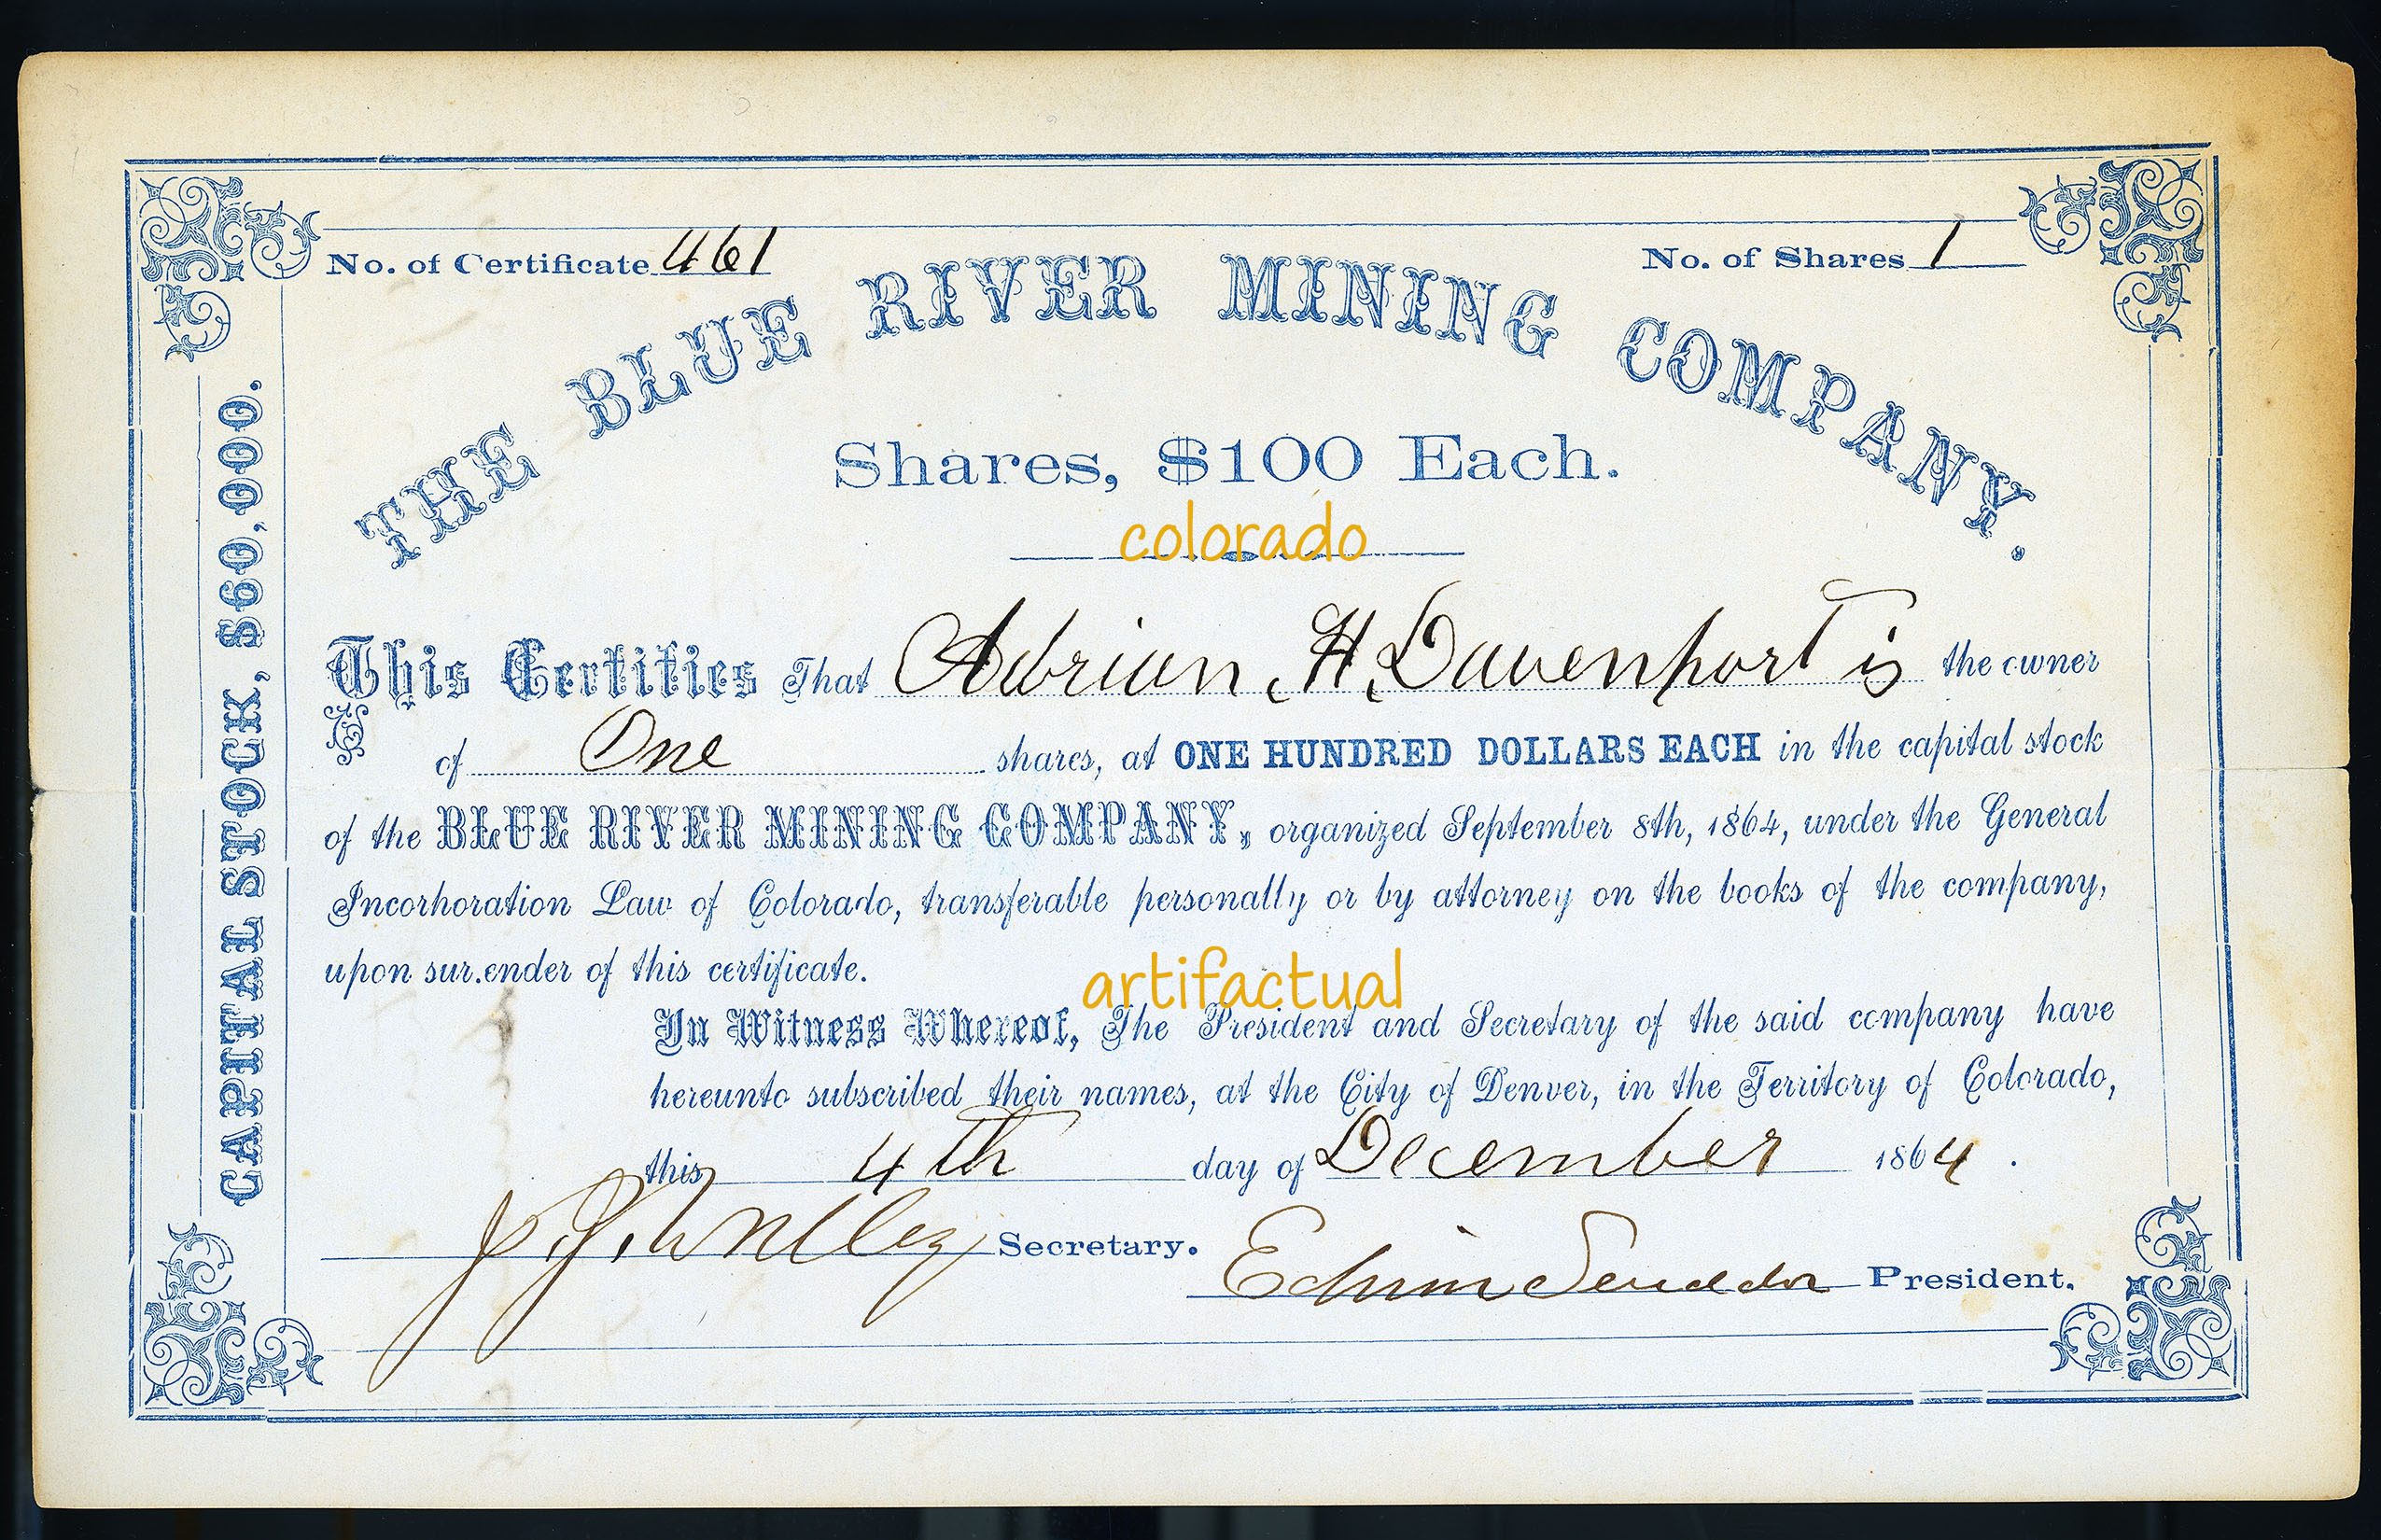 No. of Certificate 461
No. of Shares 1
THE BLUE RIVER MINING COMPANY.
Shares, $100 Each.
colorado
CAPITAL STOCK, $60,000.
This Certifies That Adrian H. Davenport is the owner
of One shares, at ONE HUNDRED DOLLARS EACH in the capital stock
of the BLUE RIVER MINING COMPANY, organized September 8th, 1864, under the General
Incorporation Law of Colorado, transferable personally or by attorney on the books of the company,
upon sur.ender of this certificate.
artifactual
In Witness Whereof, The President and Secretary of the said company have
hereunto subscribed their names, at the City of Denver, in the Territory of Colorado,
this 4th day of December 1864.
Secretary.
Edwin Scudder President.